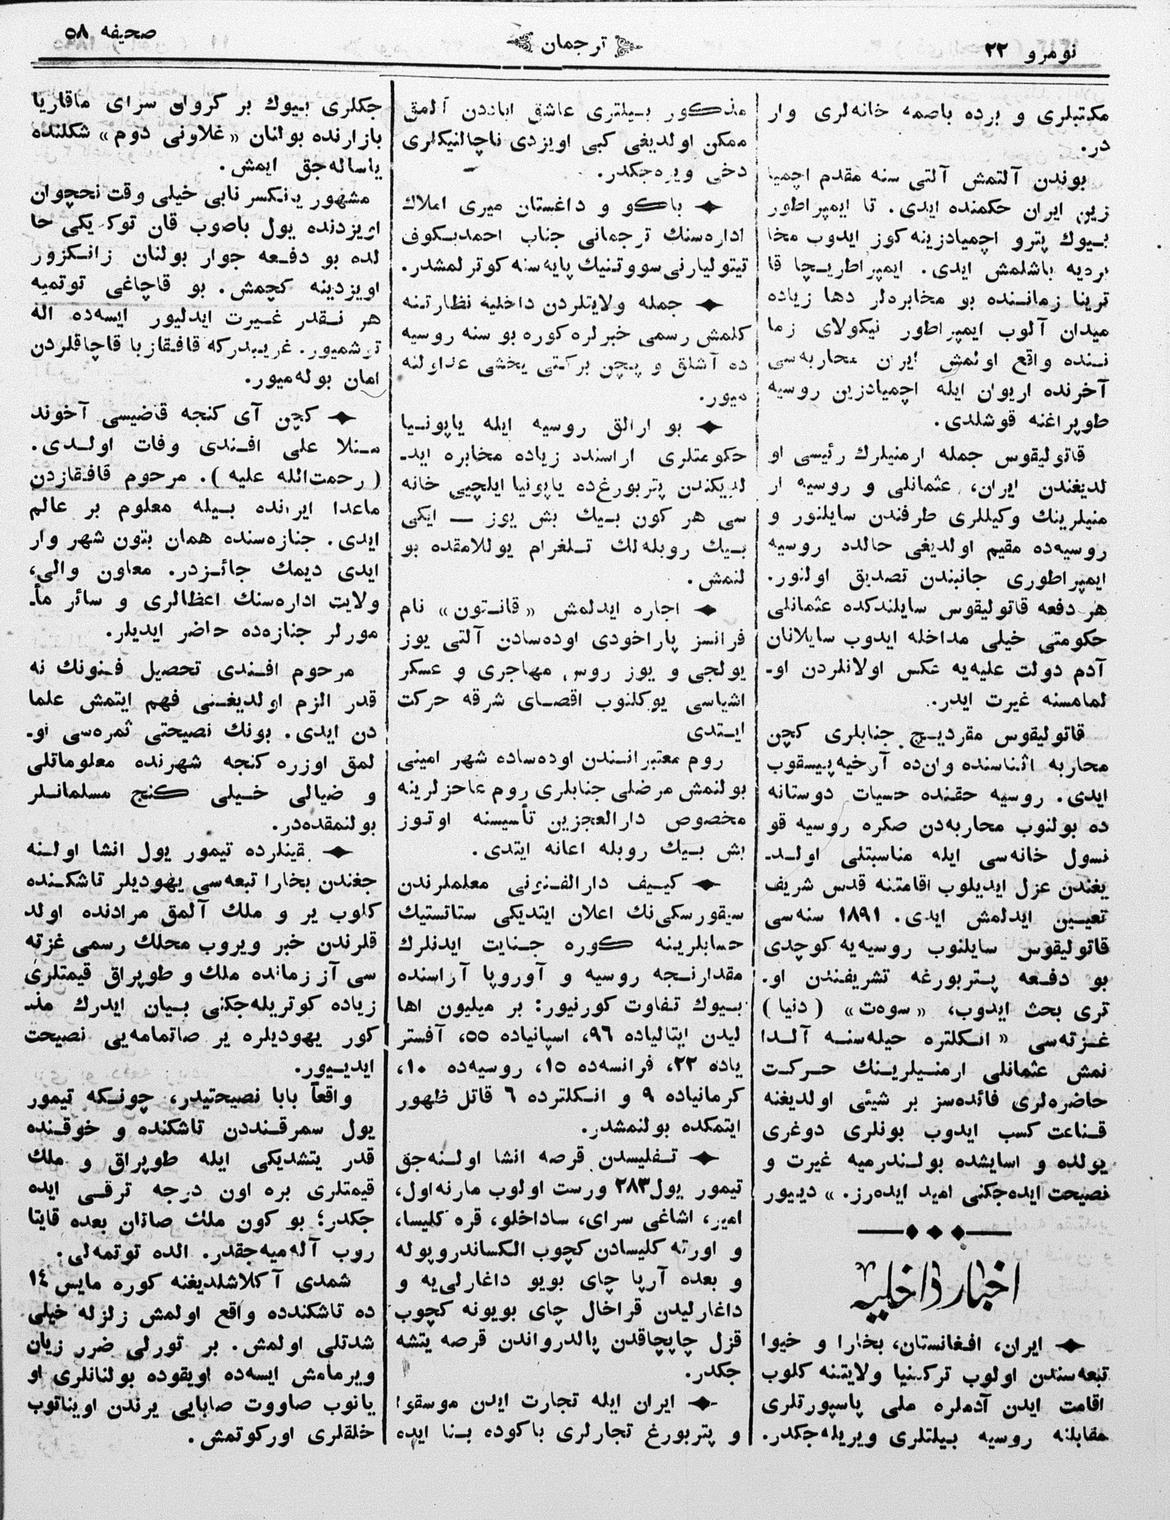 نومرو ٢٢
ترجمان
صحيفه ٥٨
مكتبلرى و برده باصمه خانه‌لرى وار
در.
بوندن آلتمش آلتى سنه مقدم اچميا
زين ايران حكمنده ايدى. تا ايمپراطور
بيوك پترو اچميادزينه كوز ايدوب مخا
برديه باشلمش ايدى. ايمپراطريچا قا
ترينا زماننده بو مخابره‌لر دها زياده
ميدان آلوب ايمپراطور نيكولاى زما
ننده واقع اولمش ايران محاربه‌سى
آخرنده اريوان ايله اچميادزين روسيه
طوپراغنه قوشلدى.
قاتوليقوس جمله ارمنيلرك رئيسى او
لديغندن ايران، عثمانلى و روسيه ار
منيلرينك وكيللرى طرفندن سايلنور و
روسيه‌ده مقيم اولديغى حالدد روسيه
ايمپراطورى جانبندن تصديق اولنور.
هر دفعه قاتوليقوس سايلندكده عثمانلى
حكومتى خيلى مداخله ايدوب سايلانان
آدم دولت عليه‌يه عكس اولانلردن او۔
لمامسنه غيرت ايدر.
قاتوليقوس مقرديچ جنابلرى كچن
محاربه اثناسنده وان‌ده آرخيه‌پيسقوب
ايدى. روسيه حقنده حسيات دوستانه
ده بولنوب محاربه‌دن صكره روسيه قو
نسول خانه‌سى ايله مناسبتلى اولد۔
يغندن عزل ايديلوب اقامتنه قدس شريف
تعيين ايدلمش ايدى. ١٨٩١ سنه‌سى
قاتوليقوس سايلنوب روسيه‌يه كوچدى
بو دفعه پتربورغه تشريفندن او.
ترى بحث ايدوب، «سوەت» (دنيا)
غزته‌سى «انكلتره حيله‌سنه آلدا
نمش عثمانلى ارمنيلرينك حركت
حاضره‌لرى فائده‌سز بر شيئى اولديغنه
قناعت كسب ايدوب بونلرى دوغرى
يولده و اسايشده بولندرميه غيرت و
نصيحت ايده‌جكنى اميد ايده‌رز.» ديیور
اخبار داخليه
ايران، افغانستان، بخارا و خيوا
تبعه‌سندن اولوب تركمنيا ولايتنه كلوب
اقامت ايدن آدملره ملى پاسپورتلرى
مقابلنه روسيه بيلتلرى ويريله‌جكدر.
مذكور بيلترى عاشق اباددن آلمق
ممكن اولديغى كبى اويزدى ناچالنيكلرى
دخى ويره‌جكدر.
باكو و داغستان ميرى املاك
اداره‌سنك ترجمانى جناب احمدبكوف
تيتوليارنى سووتنيك پايه‌سنه كوترلمشدر.
جمله ولايتلردن داخليه نظارتنه
كلمش رسمى خبرلره كوره بو سنه روسيه
ده آشلق و پچن بركتى يخشى عدا‌ولنه
ميور.
بو ارالق روسيه ايله ياپونيا
حكومتلرى اراسندد زياده مخابره ايد۔
لديكندن پتربورغ‌ده ياپونيا ايلچيى خانه
سى هر كون بيك بش يوز — ايكى
بيك روبله‌لك تلغرام يوللامقده بو
لنمش.
اجاره ايدلمش «قانتون» نام
فرانسز پاراخودى اوده‌سادن آلتى يوز
يولجى و يوز روس مهاجرى و عسكر
اشياسى يوكلنوب اقصاى شرقه حركت
ايتدى
روم معتبراننندن اوده‌ساده شهر امينى
بولنمش مرضلى جنابلرى روم عاجزلرينه
مخصوص دارالعجزين تأسيسنه اوتوز
بش بيك روبله اعانه ايتدى.
كييف دارالفنونى معلملرندن
سيقورسكى‌نك اعلان ايتديكى ستاتستيك
حسابلرينه كوره جنايت ايدنلرك
مقدارنجه روسيه و آوروپا آراسنده
بيوك تفاوت كورنيور: بر ميليون اها
ليدن ايتالياده ٩٦، اسپانياده ٥٥، آفستر
ياده ٢٢، فرانسه‌ده ١٥، روسيه‌ده ١٠،
كرمانياده ٩ و انكلترده ٦ قاتل ظهور
ايتمكده بولنمشدر.
تفليسدن قرصه انشا اولنه‌جق
تيمور يول ٢٨٣ ورست اولوب مارنه‌اول،
امير، اشاغى سراى، ساداخلو، قره كليسا،
و اورته كليسادن كچوب الكساندروپوله
و بعده آرپا چاى بويو داغارلى‌يه و
داغارليدن قراخال چاى بويونه كچوب
قزل چاپچاقدن پالدرواندن قرصه يتشه
جكدر.
ايران ايله تجارت ايدن موسقوا
و پتربورغ تجارلرى باكوده بنا ايده
جكلرى بيوك بر كروان سراى ماقاريا
بازارنده بولنان «غلاونى دوم» شكلنده
ياساله‌جق ايمش.
مشهور يانكسر نابى خيلى وقت نخچوان
اويزدنده يول باصوب قان توكديكى حا
لده بو دفعه جوار بولنان زانكزور
اويزدينه كچمش. بو قاچاغى توتميه
هر نقدر غيرت ايدليور ايسه‌ده اله
توشميور. غريبدركه قافقازيا قاچاقلردن
امان بوله‌ميور.
كچن آى كنجه قاضيسى آخوند
منلا على افندى وفات اولدى.
(رحمت‌الله عليه). مرحوم قافقازدن
ماعدا ايرانده بيله معلوم بر عالم
ايدى. جنازه‌سنده همان بتون شهر وار
ايدى ديمك جائزدر. معاون والى،
ولايت اداره‌سنك اعظالرى و سائر مأ۔
مورلر جنازه‌ده حاضر ايديلر.
مرحوم افندى تحصيل فنونك نه
قدر الزم اولديغنى فهم ايتمش علما
دن ايدى. بونك نصيحتى ثمره‌سى او۔
لمق اوزره كنجه شهرنده معلوماتلى
و ضيالى خيلى كنج مسلمانلر
بولنمقده‌در.
يقينلرده تيمور يول انشا اولنه
جغندن بخارا تبعه‌سى يهوديلر تاشكنده
كلوب ير و ملك آلمق مرادنده اولد
قلرندن خبر ويروب محلك رسمى غزته
سى آز زمانده ملك و طوپراق قيمتلرى
زياده كوتريله‌جكنى بيان ايدرك مذ
كور يهوديلره ير صاتمامه‌يى نصيحت
ايدييور.
واقعاً بابا نصيحتيدر، چونكه تيمور
يول سمرقنددن تاشكنده و خوقنده
قدر يتشديكى ايله طوپراق و ملك
قيمتلرى بره اون درجه ترقى ايده
جكدر؛ بو كون ملك صاتان بعده قايتا
روب آله‌ميه‌جقدر. الده توتمه‌لى.
شمدى آكلاشلديغنه كوره مايس ١٤
ده تاشكندده واقع اولمش زلزله خيلى
شدتلى اولمش. بر تورلى ضرر زيان
ويرمامش ايسه‌ده اويقوده بولنانلرى او
يانوب صاووت صابايى يرندن اويناتوب
خلقلرى اوركوتمش.